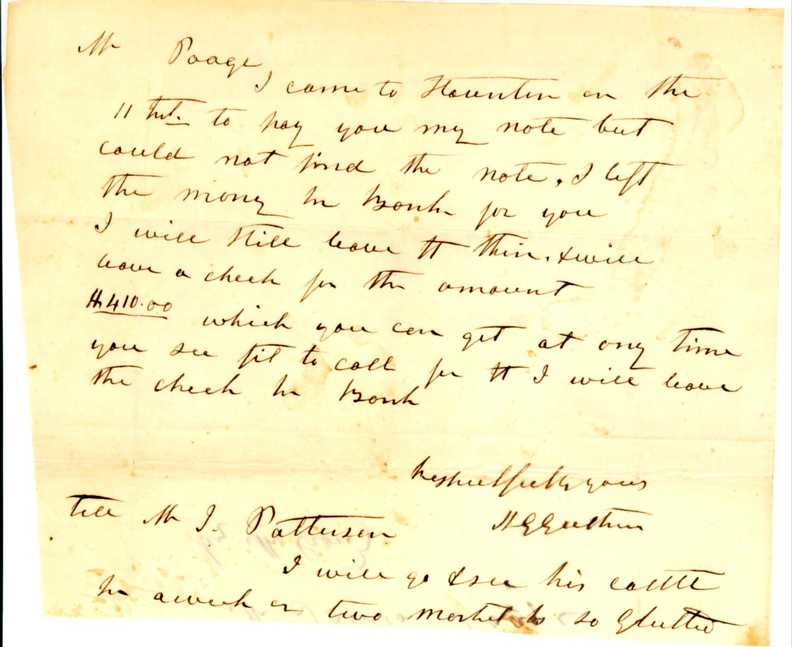 Mr Poage
I came to Staunton on the
11 Inst. to pay you my note but
could not find the note. I left
the money in Bank for you
I will still leave it thir. & will
leave a check for the amount
$410.00 which you can get at any time
you see fit to call for it I will leave
the check in Bank
Respectfully yours
tell Mr J. Patterson
I will go & see his cattle
in a week or two market is so glutted